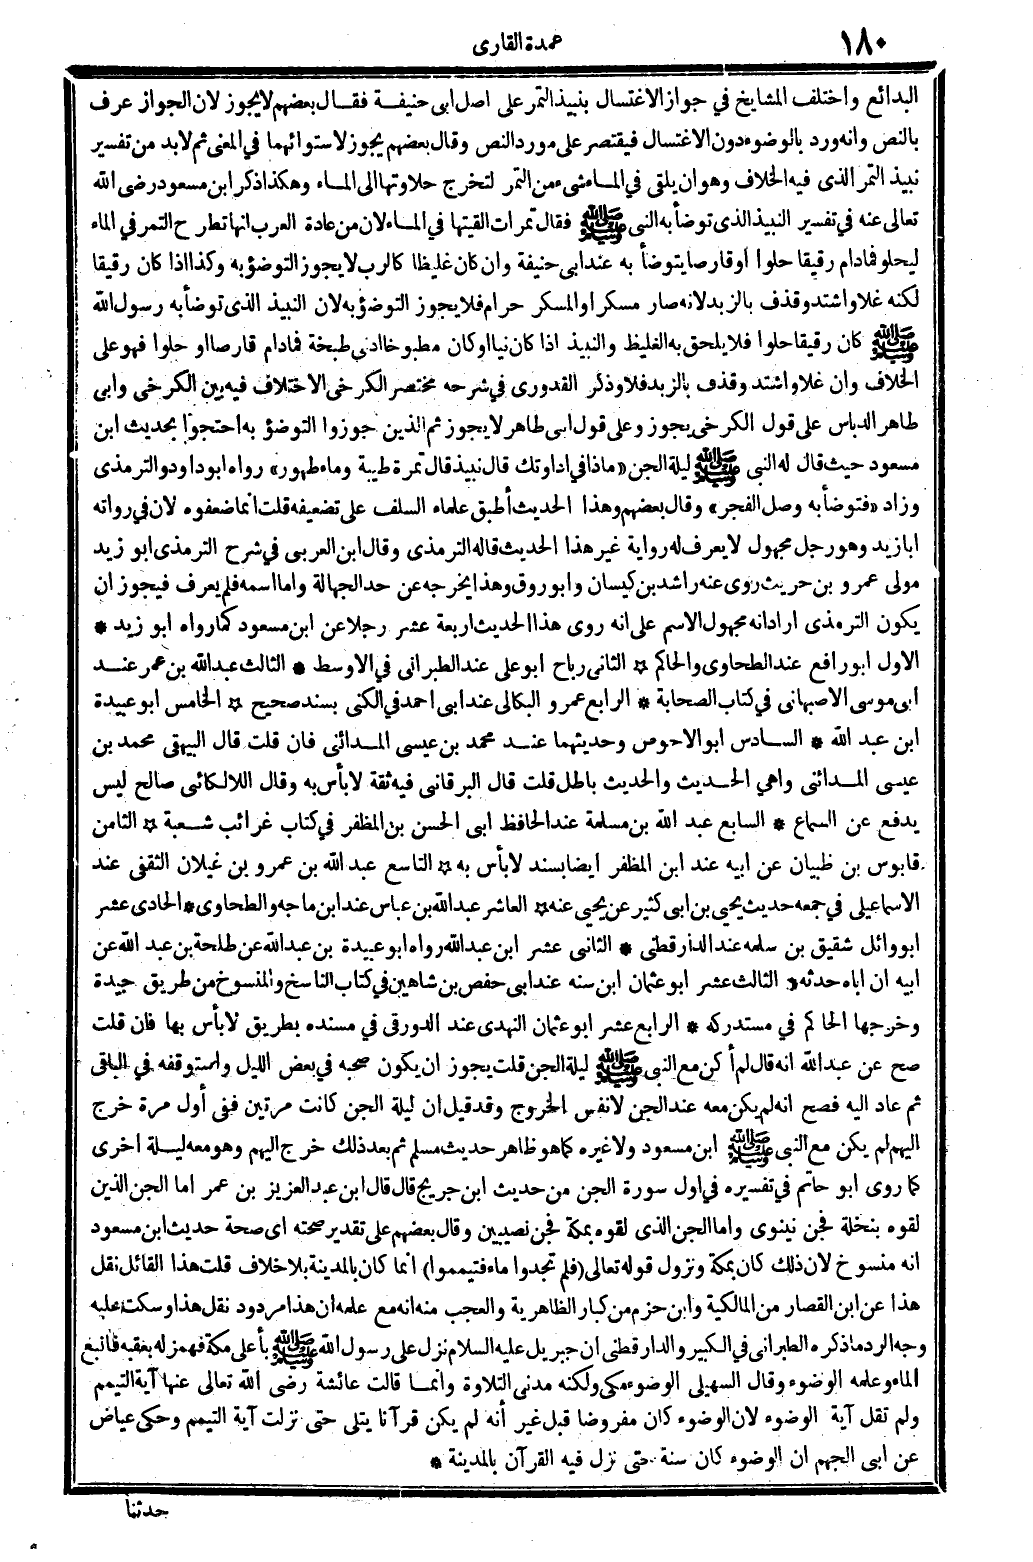 ١٨٠
عمدة القارى
البدائع واختلف المشايخ في جواز الاغتسال بنبيذ التمر على اصل ابى حنيفة فقال بعضهم لا يجوز لان الجواز عرف
بالنص وانه ورد بالوضوء دون الاغتسال فيقتصر على مورد النص وقال بعضهم يجوز لاستوائهما في المعنى ثم لابد من تفسير
نبيذ التمر الذى فيه الخلاف وهو ان يلقى في الماء شىء من التمر لتخرج حلاوتها الى الماء وهكذا ذكر ابن مسعود رضى الله
تعالى عنه في تفسير النبيذ الذى توضأ به النبى ﷺ فقال تمرات القيتها في الماء لان من عادة العرب انها تطرح التمر في الماء
ليحلو فمادام رقيقا حلوا أو قارصا يتوضأ به عند ابى حنيفة وان كان غليظا كالرب لا يجوز التوضؤ به وكذا اذا كان رقيقا
لكنه غلا واشتد وقذف بالزبد لانه صار مسكرا والمسكر حرام فلا يجوز التوضؤ به لان النبيذ الذى توضأ به رسول الله
ﷺ كان رقيقا حلوا فلا يلحق به الغليظ والنبيذ اذا كان نيا او كان مطبوخا ادنى طبخة فمادام قارصا او حلوا فهو على
الخلاف وان غلا واشتد وقذف بالزبد فلا وذكر القدورى في شرحه مختصر الكرخى الاختلاف فيه بين الكرخى وابى
طاهر الدباس على قول الكرخى يجوز وعلى قول ابى طاهر لا يجوز ثم الذين جوزوا التوضؤ به احتجوا بحديث ابن
مسعود حيث قال له النبى ﷺ ليلة الجن «ماذا في اداوتك قال نبيذ قال تمرة طيبة وماء طهور» رواه ابو داود والترمذى
وزاد «فتوضأ به وصلى الفجر» وقال بعضهم وهذا الحديث أطبق علماء السلف على تضعيفه قلت انما ضعفوه لان في رواته
ابا زيد وهو رجل مجهول لا يعرف له رواية غير هذا الحديث قاله الترمذى وقال ابن العربى في شرح الترمذى ابو زيد
مولى عمرو بن حريث روى عنه راشد بن كيسان وابو روق وهذا يخرجه عن حد الجهالة واما اسمه فلم يعرف فيجوز ان
يكون الترمذى اراد انه مجهول الاسم على انه روى هذا الحديث اربعة عشر رجلا عن ابن مسعود كما رواه ابو زيد *
الاول ابو رافع عند الطحاوى والحاكم * الثانى رباح ابو على عند الطبرانى في الاوسط * الثالث عبدالله بن عمر عند
ابى موسى الاصبهانى في كتاب الصحابة * الرابع عمرو البكالى عند ابى احمد في الكنى بسند صحيح * الخامس ابو عبيدة
ابن عبد الله * السادس ابو الاحوص وحديثهما عند محمد بن عيسى المدائنى فان قلت قال البيهقى محمد بن
عيسى المدائنى واهي الحديث والحديث باطل قلت قال البرقانى فيه ثقة لا بأس به وقال اللالكائى صالح ليس
يدفع عن السماع * السابع عبد الله بن مسلمة عند الحافظ ابى الحسن بن المظفر في كتاب غرائب شعبة * الثامن
قابوس بن ظبيان عن ابيه عند ابن المظفر ايضا بسند لا بأس به * التاسع عبد الله بن عمرو بن غيلان الثقفى عند
الاسماعيلى في جمعه حديث يحيى بن ابى كثير عن يحيى عنه * العاشر عبدالله بن عباس عند ابن ماجه والطحاوى * الحادى عشر
ابو وائل شقيق بن سلمه عند الدارقطنى * الثانى عشر ابن عبدالله رواه ابو عبيدة بن عبدالله عن طلحة بن عبد الله عن
ابيه ان اباه حدثه * الثالث عشر ابو عثمان ابن سنه عند ابى حفص بن شاهين في كتاب الناسخ والمنسوخ من طريق جيدة
وخرجها الحاكم في مستدركه * الرابع عشر ابو عثمان النهدى عند الدورقى في مسنده بطريق لا بأس بها فان قلت
صح عن عبدالله انه قال لم أكن مع النبى ﷺ ليلة الجن قلت يجوز ان يكون صحبه في بعض الليل واستوقفه في الباقى
ثم عاد اليه فصح انه لم يكن معه عند الجن لا نفس الخروج وقد قيل ان ليلة الجن كانت مرتين ففى أول مرة خرج
اليهم لم يكن مع النبى ﷺ ابن مسعود ولا غيره كما هو ظاهر حديث مسلم ثم بعد ذلك خرج اليهم وهو معه ليلة اخرى
كما روى ابو حاتم في تفسيره في اول سورة الجن من حديث ابن جريج قال قال ابن عبد العزيز بن عمر اما الجن الذين
لقوه بنخلة فجن نينوى واما الجن الذى لقوه بمكة فجن نصيبين وقال بعضهم على تقدير صحته اى صحة حديث ابن مسعود
انه منسوخ لان ذلك كان بمكة ونزول قوله تعالى (فلم تجدوا ماء فتيمموا) انما كان بالمدينة بلا خلاف قلت هذا القائل نقل
هذا عن ابن القصار من المالكية وابن حزم من كبار الظاهرية والعجب منه انه مع علمه ان هذا مردود نقل هذا وسكت عليه
وجه الرد ما ذكره الطبرانى في الكبير والدارقطنى ان جبريل عليه السلام نزل على رسول الله ﷺ بأعلى مكة فهمز له بعقبه فانبع
الماء وعلمه الوضوء وقال السهيلى الوضوء مكى ولكنه مدنى التلاوة وانما قالت عائشة رضى الله تعالى عنها آية التيمم
ولم تقل آية الوضوء لان الوضوء كان مفروضا قبل غير أنه لم يكن قرآنا يتلى حتى نزلت آية التيمم وحكى عياض
عن ابى الجهم ان الوضوء كان سنة حتى نزل فيه القرآن بالمدينة *
حدثنا